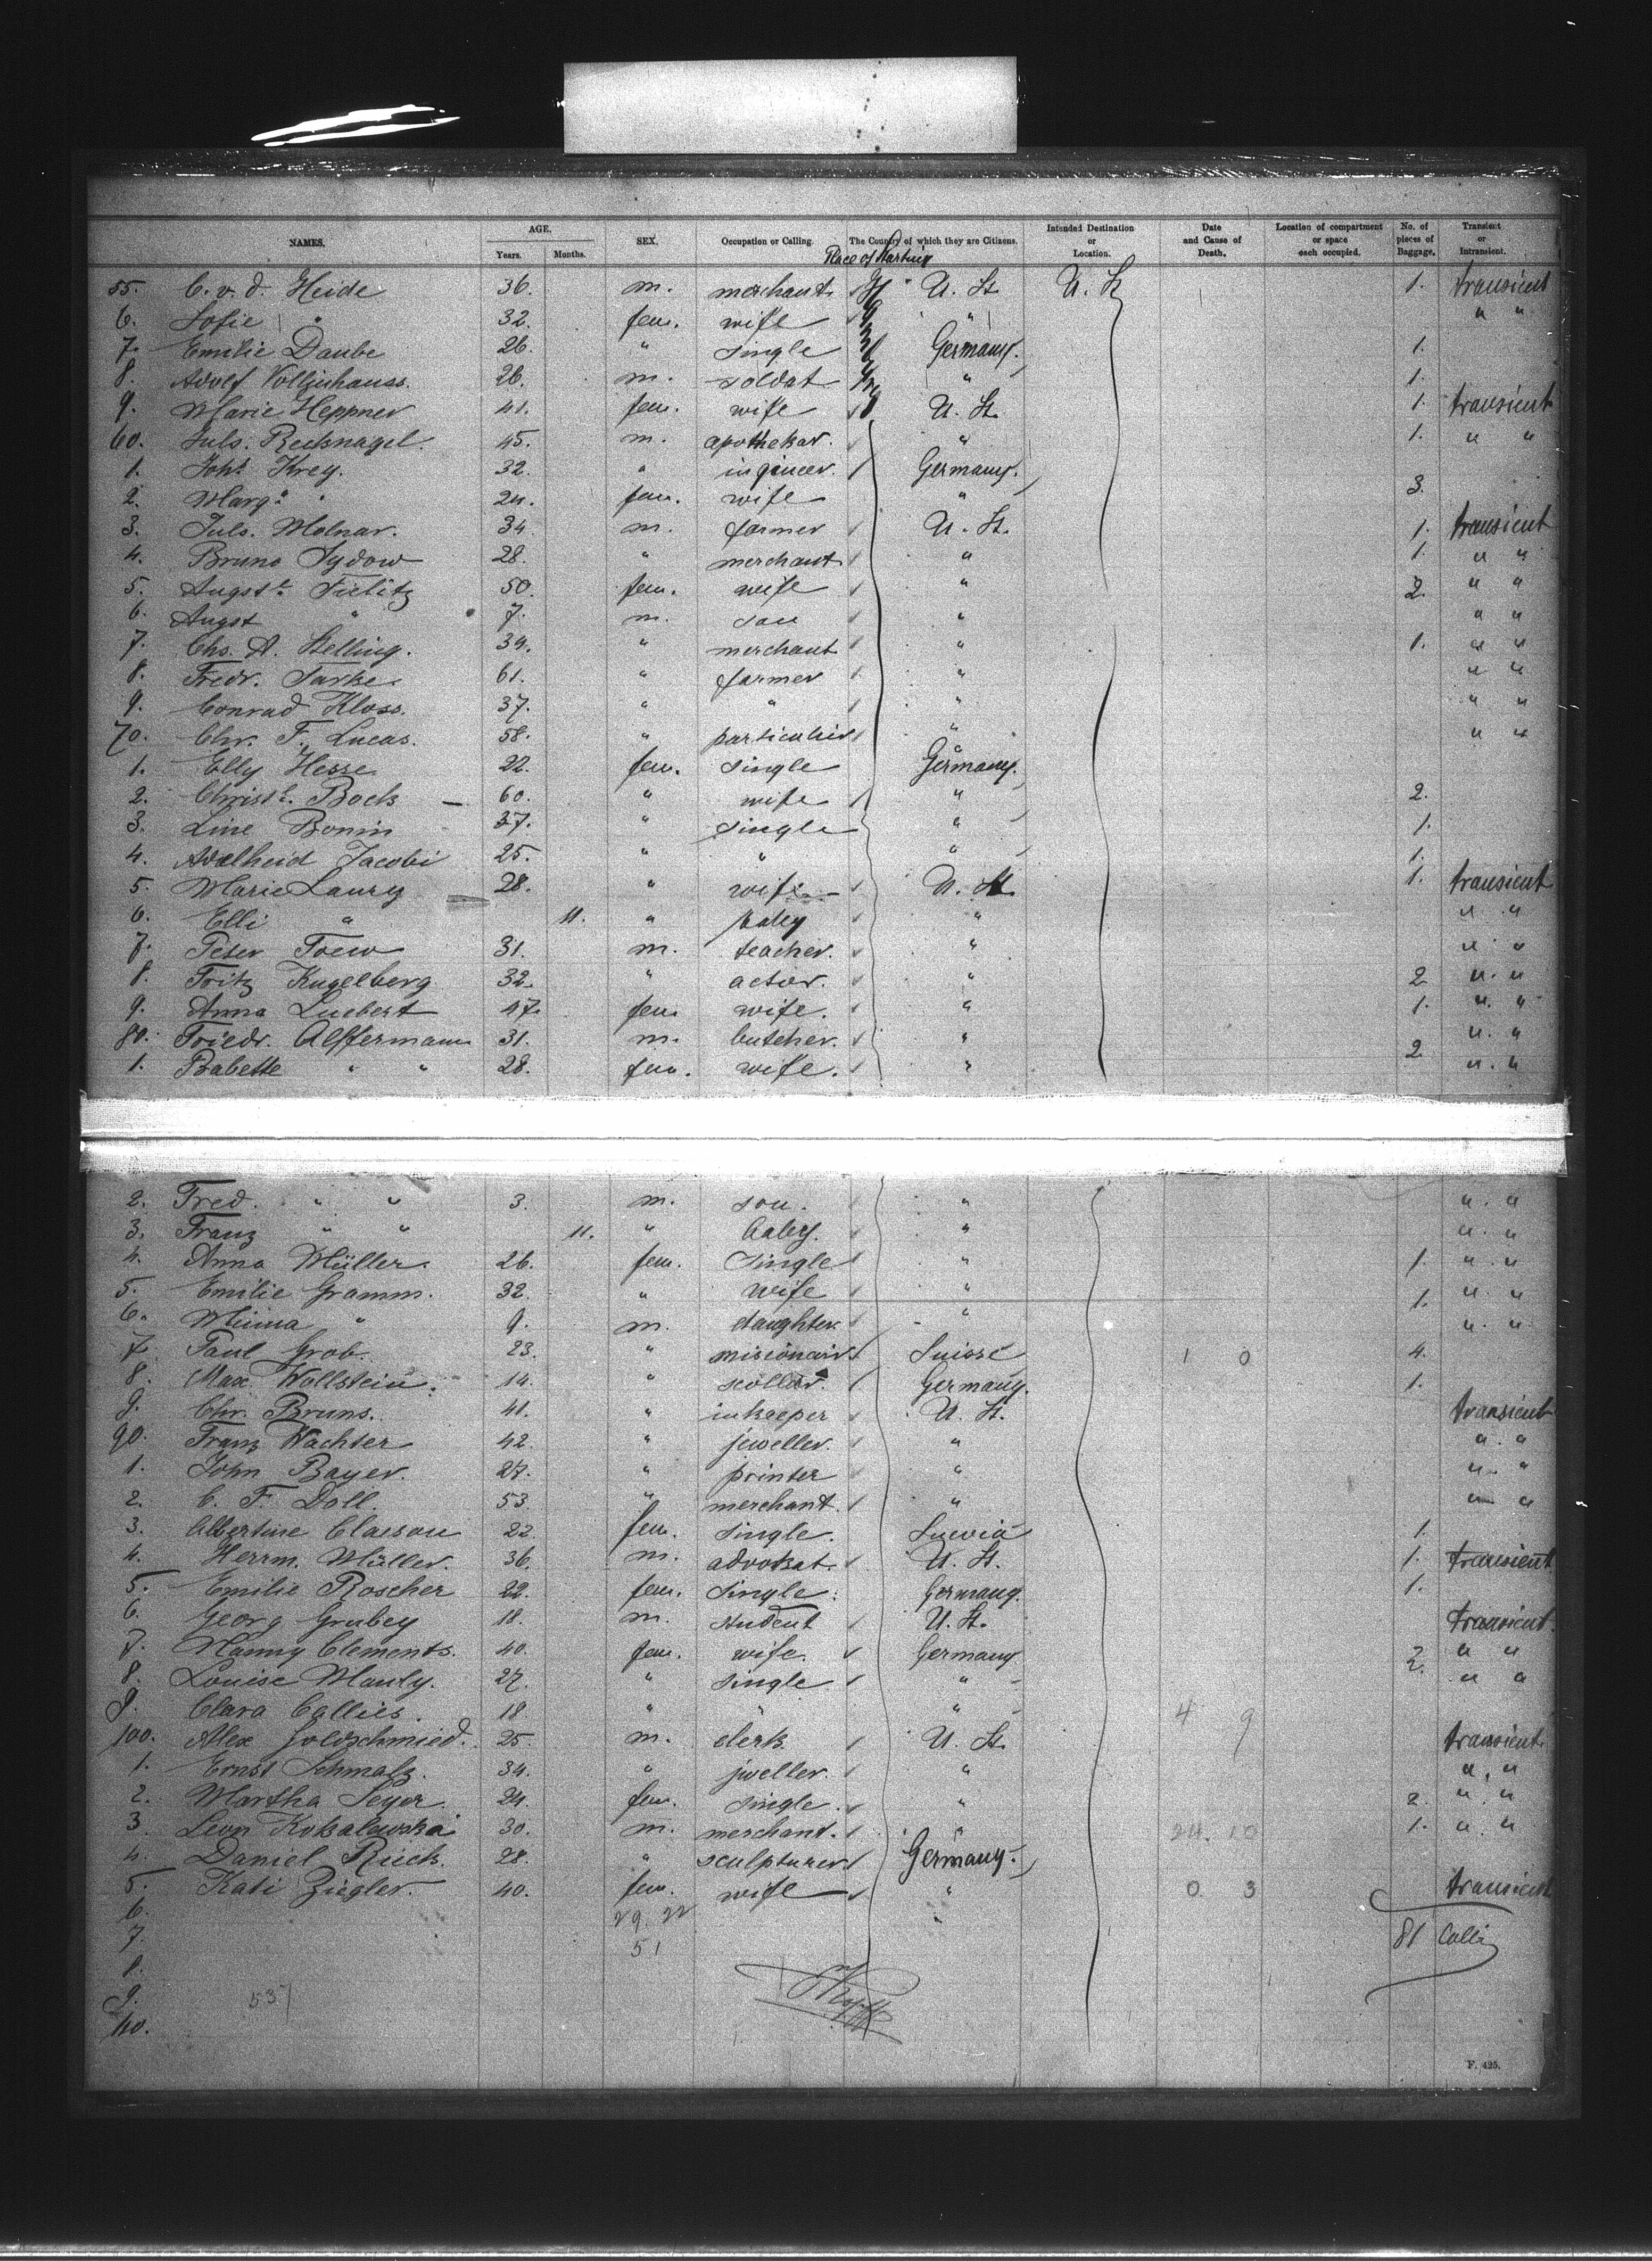 NAMES. AGE. Years. Months. SEX. Occupation or Calling. The Country of which they are Citizens. Intended Destination or Location. Date and Cause of Death. Location of compartment or space each occupied. No. of pieces of Baggage. Transient or Intransient.
Place of
55. C. v. d. Heide 36. m. merchant U. St. U. St 1. transient
6. Sofie " 32. fem. wife " " "
7. Emilie Daube 26. " single Germany. 1.
8. Adolf 26. m. soldat " 1.
9. Marie Heppner 41. fem. wife U. St. 1. transient
60. Juls. Recknagel. 45. m. apothekar. " 1. " "
1. Johs Krey. 32. " ingineer. Germany.
2. Marg. " 24. fem. wife " 3.
3. Juls. Molnar. 34 m. farmer U. St. 1. transient
4. Bruno Sydow 28. " merchant " 1. " "
5. Augste. Tielitz 50. fem. wife " 2. " "
6. Augst " 7. m. son " " "
7. Chs. A. Stelling. 39. " merchant " 1. " "
8. Fredr. Tarke. 61. " farmer " " "
9. Conrad Kloss. 37. " " " " "
70. Chr. F. Lucas. 58. " particulier " " "
1. Elly Hesse 22. fem. single Germany.
2. Christe. Bock 60. " wife " 2.
3. Line Bonin 37. " single " 1.
4. Adelheid Jacobi 25. " " " 1.
5. Marie Laury 28. " wife U. St. 1. transient
6. Elli " 11. " baby " " "
7. Peter Toew 31. m. teacher. " " "
8. Fritz Kugelberg 32. " actor. " 2 " "
9. Anna Luebert 47. fem wife. " 1. " "
80. Friedr. Alffermann 31. m. butcher. " " "
1. Babette " " 28. fem. wife. " 2 " "
2. Fred. " " 3. m. son. " " "
3. Franz " " 11. " baby. " " "
4. Anna Müller. 26. fem. single " 1. " "
5. Emilie Gramm. 32. " wife " 1. " "
6. Minna " 9. m. daughter. " " "
7. Paul Grob. 23. " misionair. Suisse 1 0 4.
8. Max Wallstein. 14. " scollar. Germany. 1.
9. Chr. Bruns. 41. " inkeeper U. St. transient
90. Franz Wachter 42. " jeweller. " " "
1. John Bayer. 27. " printer " " "
2. C. F. Doll. 53. " merchant. " " "
3. Albertine Clauson 22. fem. single. Suevia 1.
4. Herrm. Müller. 36. m. advokat. U. St. 1. transient
5. Emilie Roscher 22. fem. single. Germany. 1.
6. Georg Grubey 18. m. student U. St. transient.
7. Nanny Clements. 40. fem. wife. Germany 2. " "
8. Louise Mauly. 27. " single " " "
9. Clara Callies. 18. " " " 4 9
100. Alex Goldschmied. 25. m. clerk U. St. transient.
1. Ernst Schmalz. 34. " jweller. " " "
2. Martha Seyer. 24. fem. single. " 2. " "
3. Leon Kokalewska 30. m. merchant. " 24. 10 1. " "
4. Daniel Rück. 28. " sculpturer Germany.
5. Kati Ziegler. 40. fem. wife " 0 3 transient
6. 29. 22
7. 51 81 Colli
8.
9. 53
110.
F. 425.